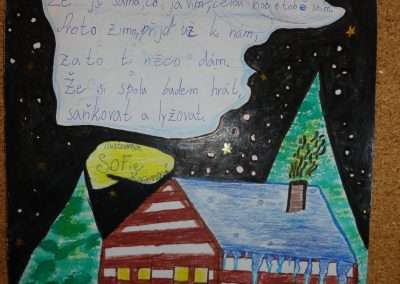 Že je sama, to já vím,
Proto zimo, přijď už k nám,
za to ti něco dám.
Že si spolu budem hrát,
sáňkovat a lyžovat.
ilustrovala
SOFIE